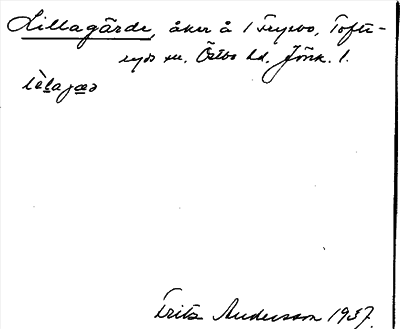 Lillagärde, åker å 1 Fryebo, Tofte-
ryds sn. Östbo hd. Jönk. l.
Fritz Andersson 1937.